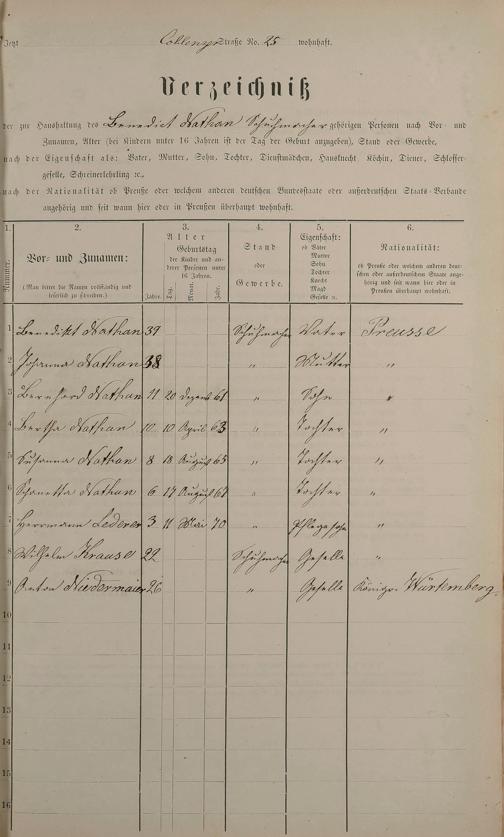 Jetzt Coblenzer Straße No. 25 wohnhaft.
Verzeichniß
der zur Haushaltung des Benedict Nathan Schuhmacher gehörigen Personen nach Vor- und
Zunamen, Alter (bei Kindern unter 16 Jahren ist der Tag der Geburt anzugeben), Stand oder Gewerbe,
nach der Eigenschaft als: Vater, Mutter, Sohn, Tochter, Dienstmädchen, Hausknecht, Köchin, Diener, Schlosser-
geselle, Schreinerlehrling ꝛc.,
nach der Nationalität ob Preuße oder welchem anderen deutschen Bundesstaate oder außerdeutschen Staats-Verbande
angehörig und seit wann hier oder in Preußen überhaupt wohnhaft.
1. 2. 3. 4. 5. 6.
Nummer.
Vor- und Zunamen:
(Man bittet die Namen vollständig und
leserlich zu schreiben.)
Alter
Jahre.
Geburtstag
der Kinder und an-
derer Personen unter
16 Jahren.
Tag. Monat. Jahr.
Stand
oder
Gewerbe.
Eigenschaft:
ob Vater
Mutter
Sohn
Tochter
Knecht
Magd
Geselle ꝛc.
Nationalität:
ob Preuße oder welchem anderen deut-
schen oder außerdeutschen Staate ange-
hörig und seit wann hier oder in
Preußen überhaupt wohnhaft.
1 Benedikt Nathan 39 Schuhmacher Vater Preusse
2 Johanna Nathan 38 " Mutter "
3 Bernhard Nathan 11 20 Dezemb 61 " Sohn "
4 Bertha Nathan 10 10 April 63 " Tochter "
5 Susanna Nathan 8 18 August 65 " Tochter "
6 Schanetta Nathan 6 17 August 67 " Tochter "
7 Herrmann Lederer 3 11 Mai 70 " Pflegesohn "
8 Wilhelm Krause 22 Schuhmacher Geselle "
9 Anton Niedermaier 26 " Geselle Königr. Würtemberg
10
11
12
13
14
15
16